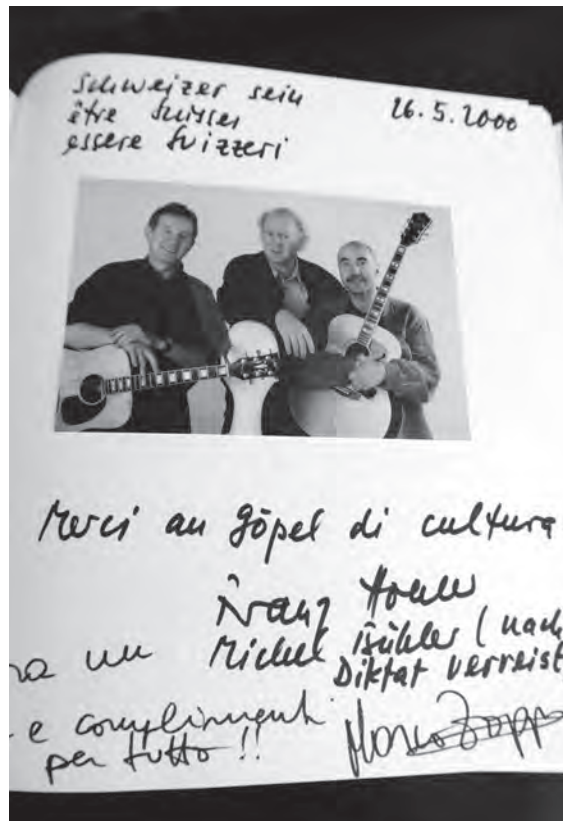 Schweizer sein
être Suisses
essere Svizzeri
26.5.2000
Merci an Göpel di cultura
Franz Hohler
Michel Bühler (nach
Diktat verreist
un
e complimenti
per tutto !!
Marco Zappa